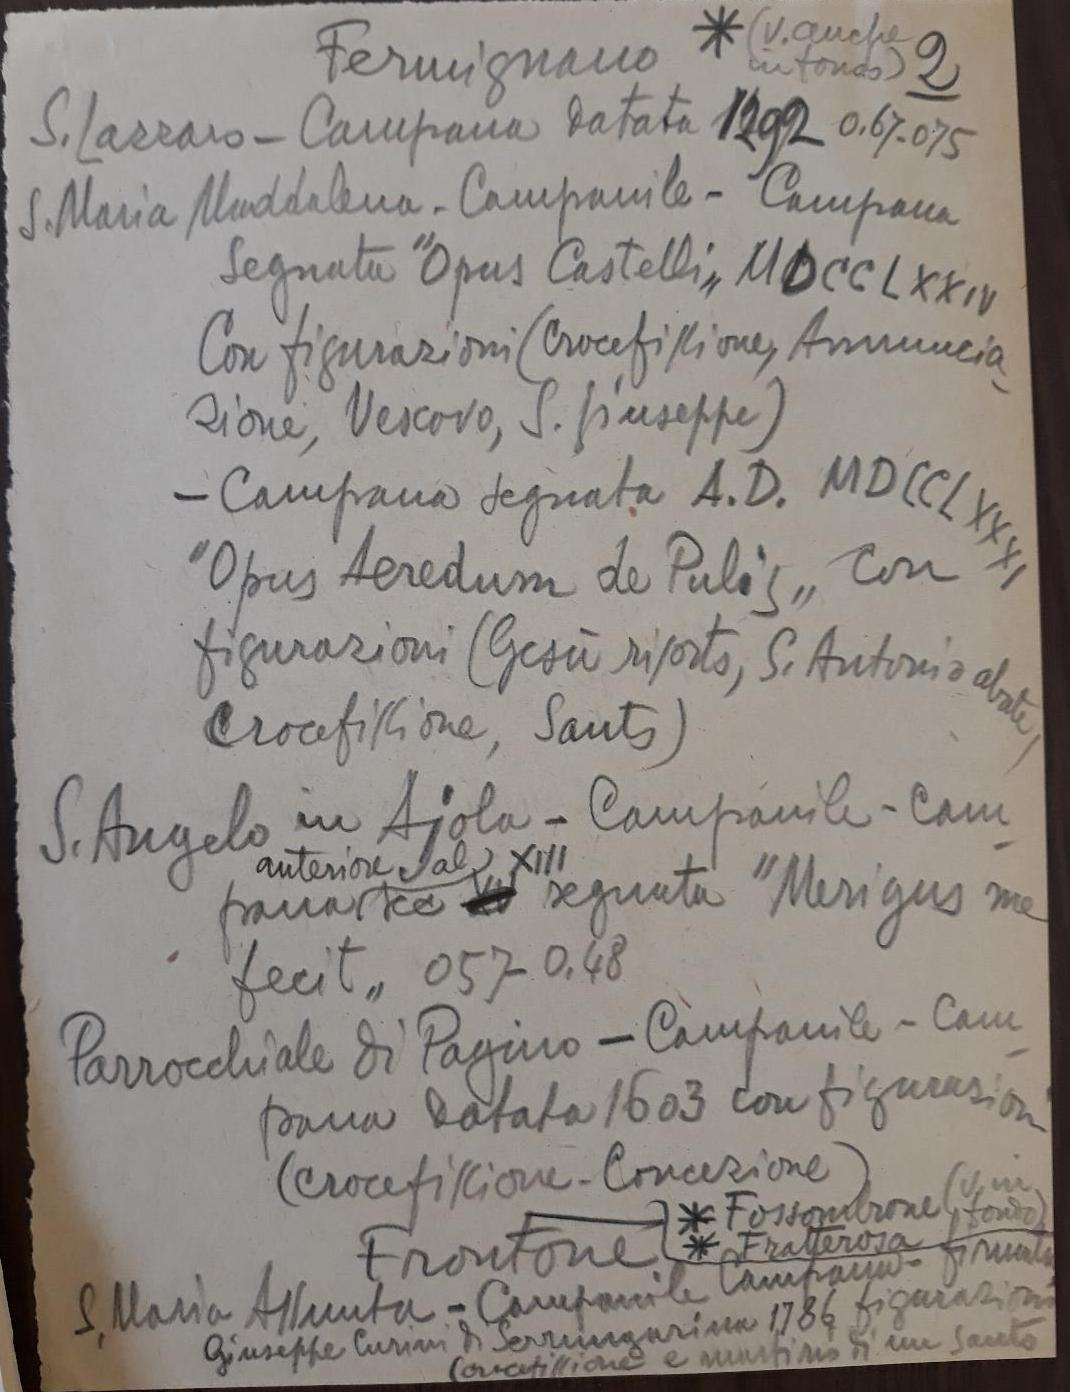 Fermignano * (v. anche
in fondo) 2
S. Lazzaro - Campana datata 1292 0.67-075
S. Maria Maddalena - Campanile - Campana
segnata "Opus Castelli„ MDCCLXXIV
Con figurazioni (Crocefissione, Annuncia-
zione, Vescovo, S. Giuseppe)
- Campana segnata A.D. MDCCLXXXI
"Opus Aeredum de Pulis„ con
figurazioni (Gesù risorto, S. Antonio abate,
Crocefissione, Santo)
S. Angelo in Ajola - Campanile - Cam-
anteriore al XIII
pana segnata "Merigus me
fecit„ 057-0.48
Parrocchiale di Pagino - Campanile - Cam-
pana datata 1603 con figurazioni
(crocefissione - Concezione)
* Fossombrone (v. in
fondo)
Frontone * Fratterosa
S. Maria Assunta - Campanile Campana - firmata
Giuseppe Curini di Serrungarina 1786 figurazioni
(crocefissione e martirio di un Santo